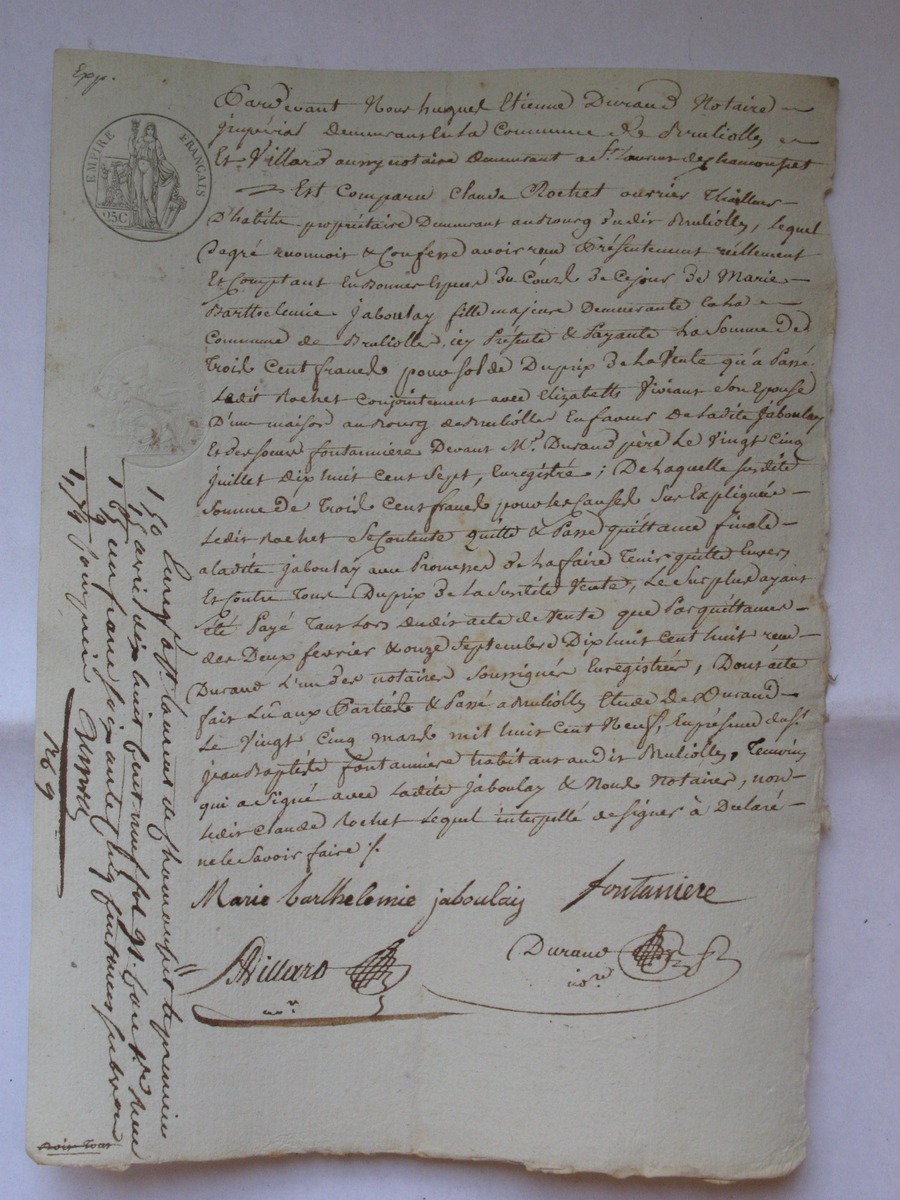 Exp.
EMPIRE FRANÇAIS
25C
Pardevant Nous huguel Etienne Durand Notaire
jmpérial Demeurant En la Commune De Brulliolles
Et Villard aussy notaire demeurant a St. Laurent de Chamousset
Est Comparu Claude Rochet ouvrier Thailleur
D'habits propriétaire Demeurant au Bourg dudit Brulliolles, lequel
de gré reconnoit & Confesse avoir reçu Présentement réellement
Et Comptant En Bonnes Espèces Du Cours De Ce jour De Marie
Barthelemie Jaboulay fille majeure Demeurante En la
Commune de Brulliolles, icy Présente & Payante La Somme De
Trois Cent francs pour solde Du prix De la Vente qu'a Passé
Ledit Rochet Conjointement avec Elizabeth Viviant Son Epouse
D'une maison au Bourg de Brulliolle En faveur De Ladite Jaboulay
Et des soeurs fontanniere Devant Me. Durand père Le Vingt Cinq
juillet Dix huit Cent Sept, Enregistré ; De Laquelle susdite
Somme De Trois Cent francs pour les Causes Sus Expliquées
Ledit Rochet Se Contente quitte & Passe quittance finale
a Ladite Jaboulay avec Promesse De La faire Tenir quitte Envers
Et Contre Tous Du prix De La Susdite Vente, Le Surplus ayant
Eté Payé Tant Lors dudit acte de Vente que Par quittances
des Deux fevrier & onze Septembre Dix huit Cent huit reçu
Durand L'un Des notaires Soussignés Enregistrées, Dont acte
fait Lû aux Parties & Passé a Brulliolles Etude De Durand
Le Vingt Cinq mars mil huit Cent Neuf, En présence du Sr.
jean Baptiste fontannière habitant audit Brulliolles, Temoin
qui a Signé avec Ladite Jaboulay & Nous Notaires, non
Ledit Claude Rochet Lequel interpellé de Signer à Déclaré
ne le Savoir faire /.
Marie barthelemie jaboulais fontaniere
Villard Durand
nore. nore.
1, 50 Enregé. a St. laurent de Chamousset le premier
1, 15 avril dix huit Cent neuf fol 91. Case reçu
un franc soixante quinze Centimes